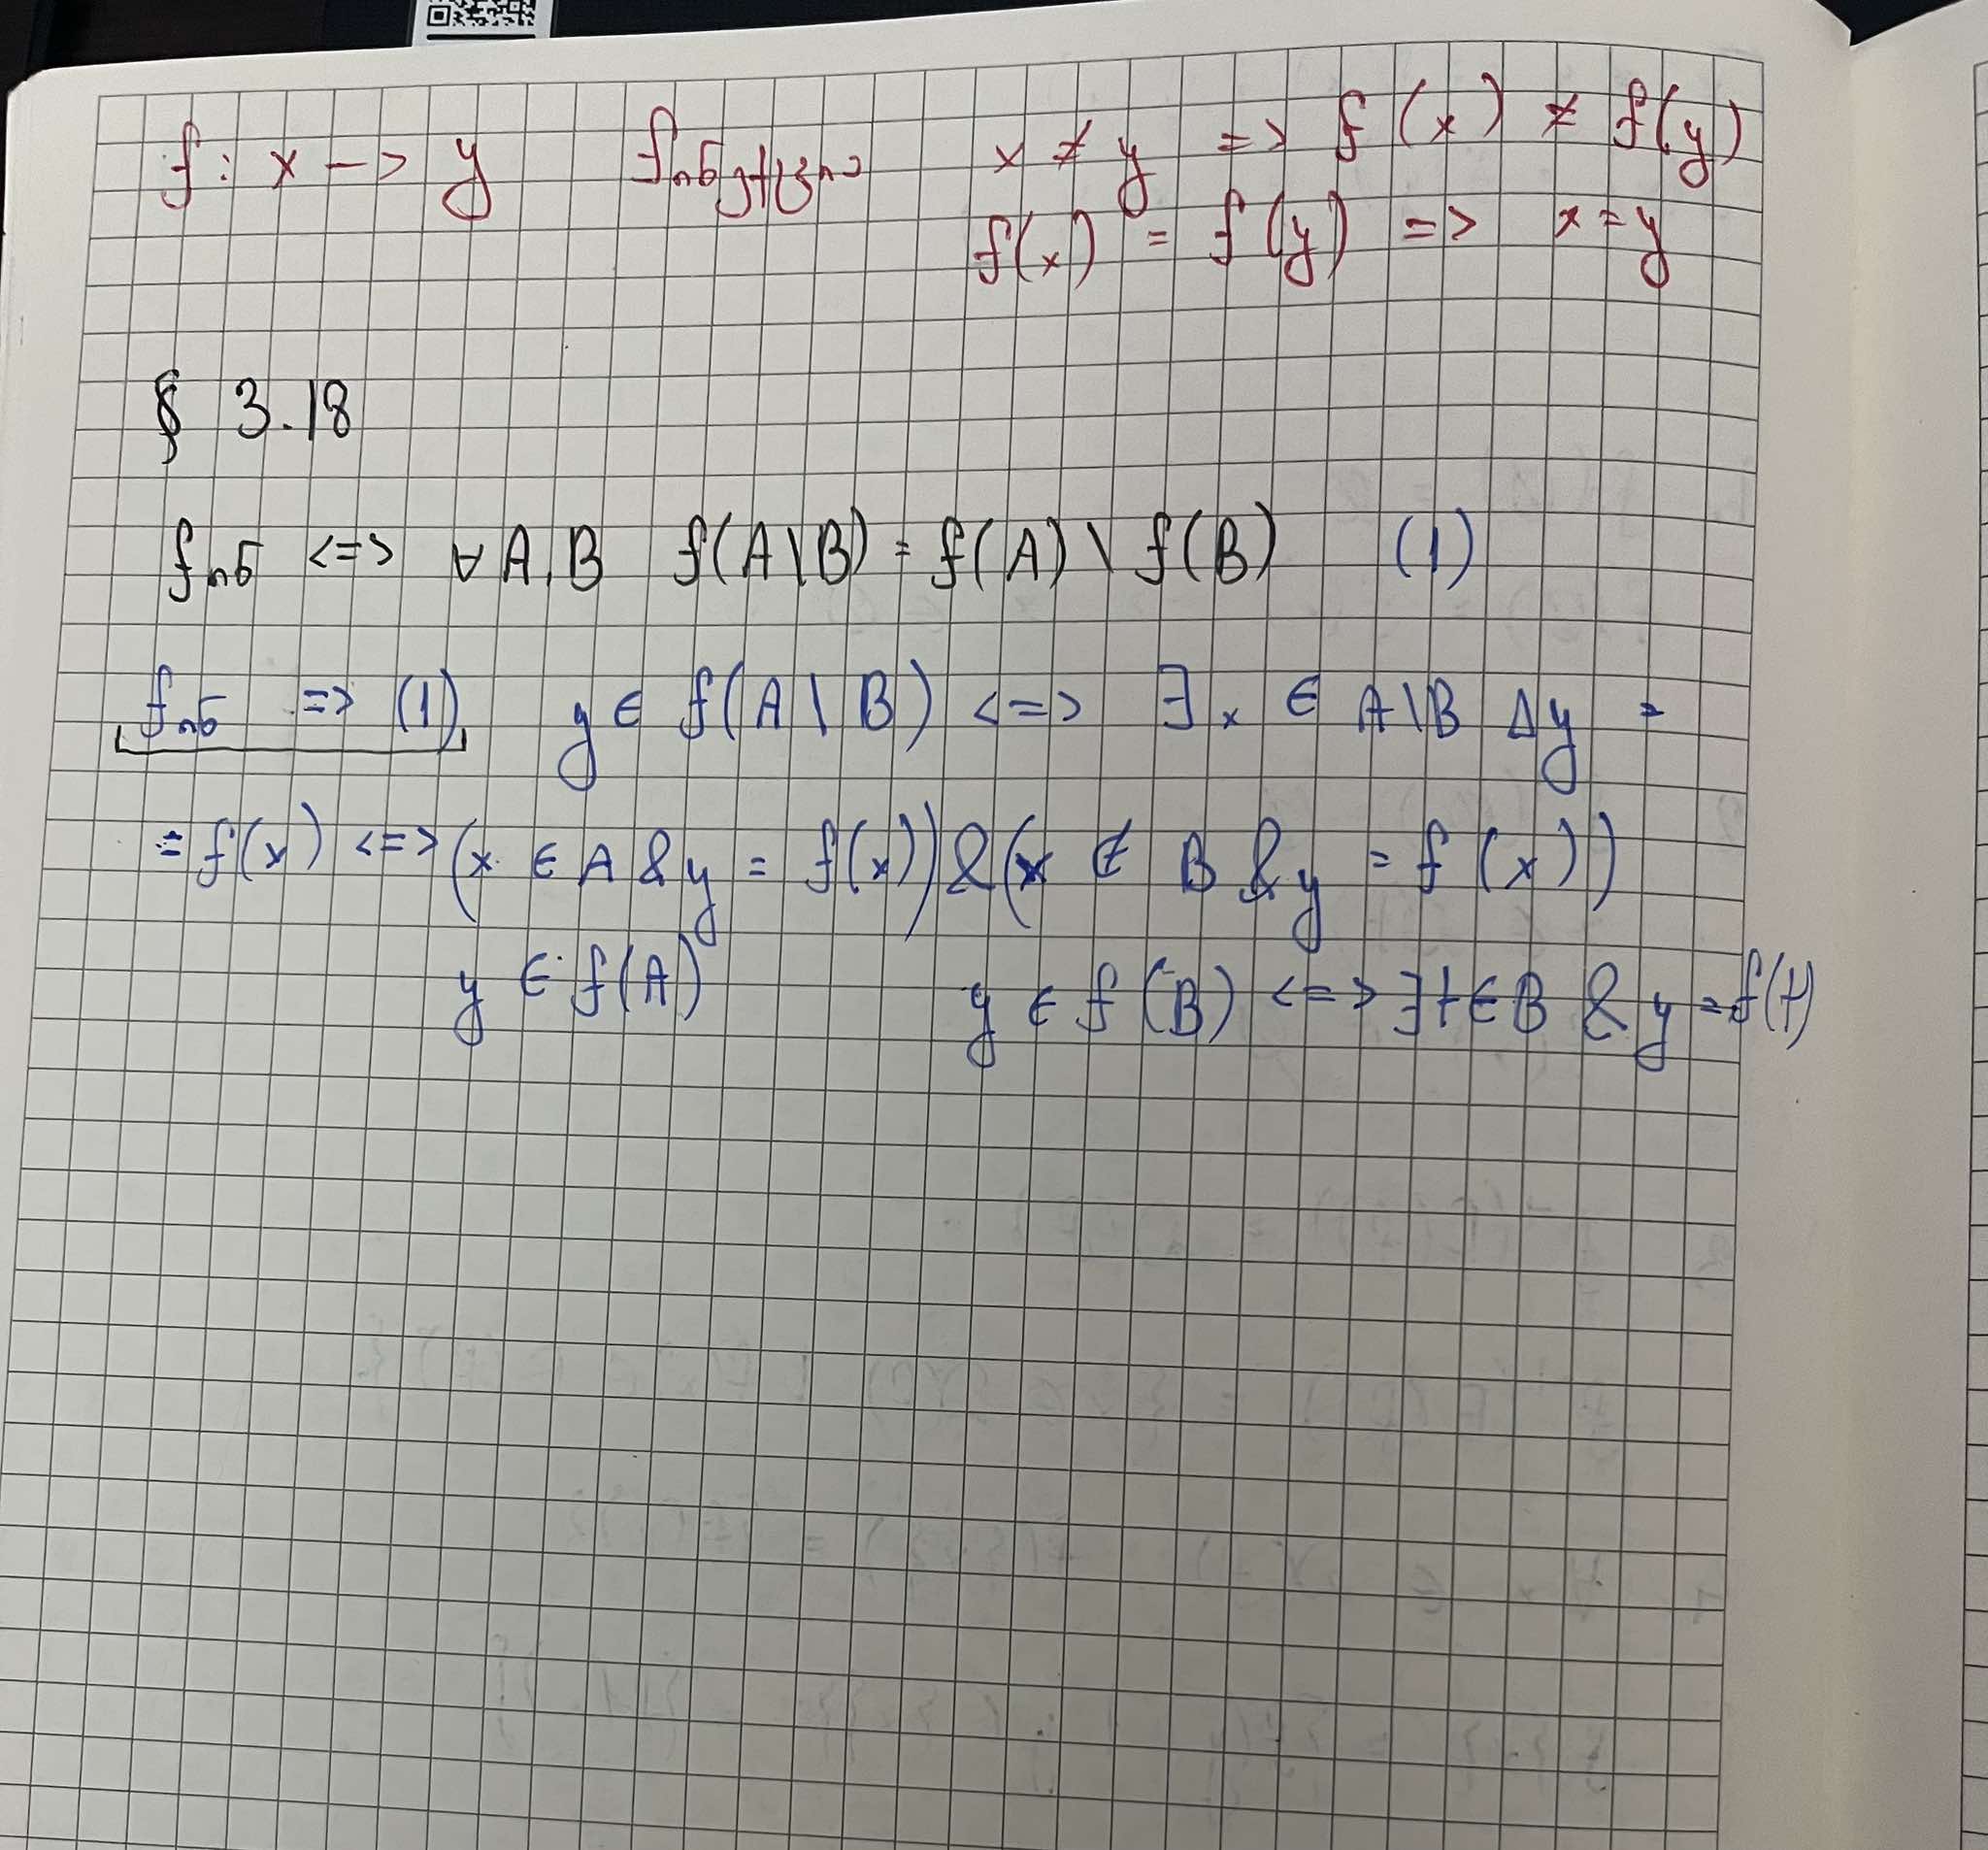 f: x -> y x ≠ y => f(x) ≠ f(y)
f(x) = f(y) => x = y
§ 3.18
f пб <=> ∀ A, B f(A\B) = f(A) \ f(B) (1)
f пб => (1) y ∈ f(A \ B) <=> ∃ x ∈ A\B Δy =
= f(x) <=> (x ∈ A & y = f(x)) & (x ∉ B & y = f(x))
y ∈ f(A) y ∈ f(B) <=> ∃ t ∈ B & y = f(t)